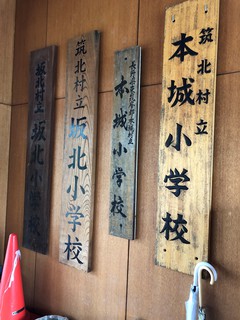 筑北村立
本城小学校
長野県東筑摩郡本城村立
本城小学校
筑北村立
坂北小学校
坂北村立
坂北小学校